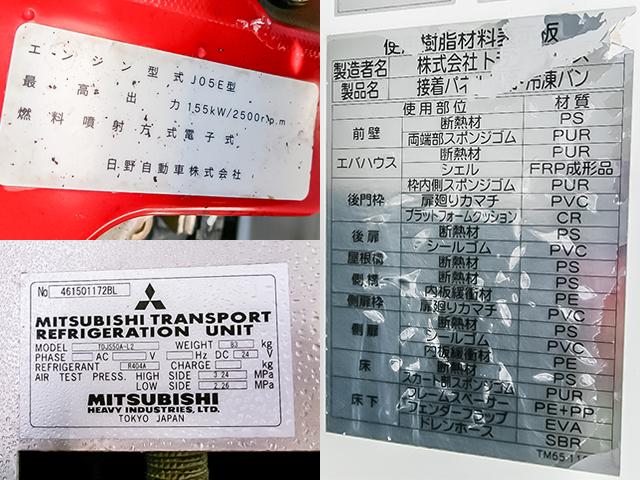 エンジン型式 J05E型
最高出力 155kW/2500r.p.m
燃料噴射方式電子式
日野自動車株式会社
No 461501172BL
MITSUBISHI TRANSPORT
REFRIGERATION UNIT
MODEL TDJS50A-L2 WEIGHT 83 kg
PHASE AC V Hz DC 24 V
REFRIGERANT R404A CHARGE kg
AIR TEST PRESS. HIGH SIDE 3.24 MPa
LOW SIDE 2.26 MPa
MITSUBISHI
HEAVY INDUSTRIES, LTD.
TOKYO JAPAN
樹脂材料 板
製造者名 株式会社ト
製品名 接着パ 冷凍バン
使用部位 材質
前壁 断熱材 PS
両端部スポンジゴム PUR
エバハウス 断熱材 PUR
シェル FRP成形品
後門枠 枠内側スポンジゴム PUR
扉廻りカマチ PVC
プラットフォームクッション CR
後扉 断熱材 PS
シールゴム PVC
屋根構 断熱材 PS
側構 断熱材 PS
内板緩衝材 PE
側扉枠 扉廻りカマチ PVC
側扉 断熱材 PS
シールゴム PVC
内板緩衝材 PE
床 断熱材 PS
スカート部スポンジゴム PUR
床下 フレームスペーサー PE+PP
フェンダーフラップ EVA
ドレンホース SBR